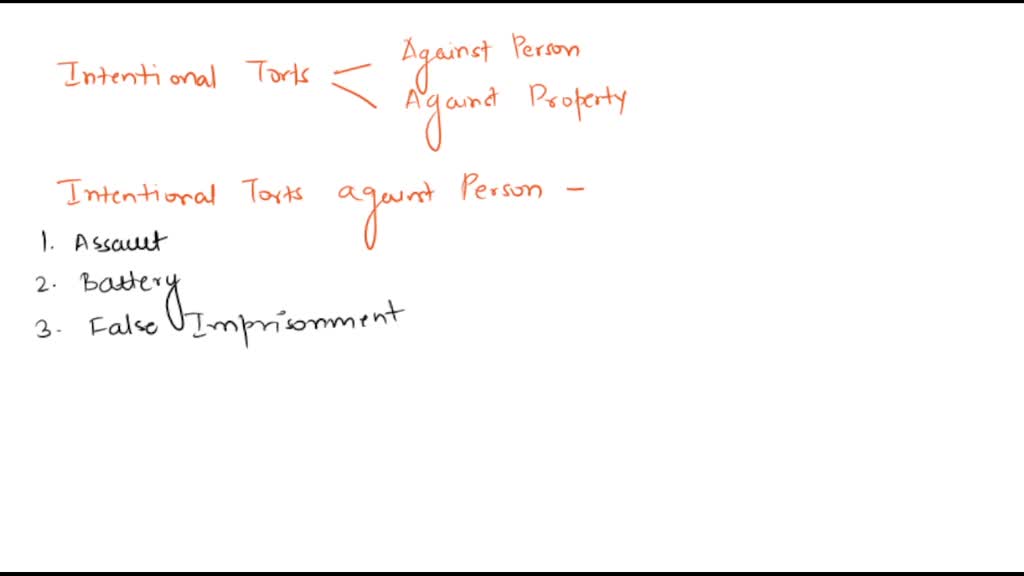 Intentional Torts < Against Person
Against Property
Intentional Torts against Person -
1. Assault
2. Battery
3. False Imprisonment